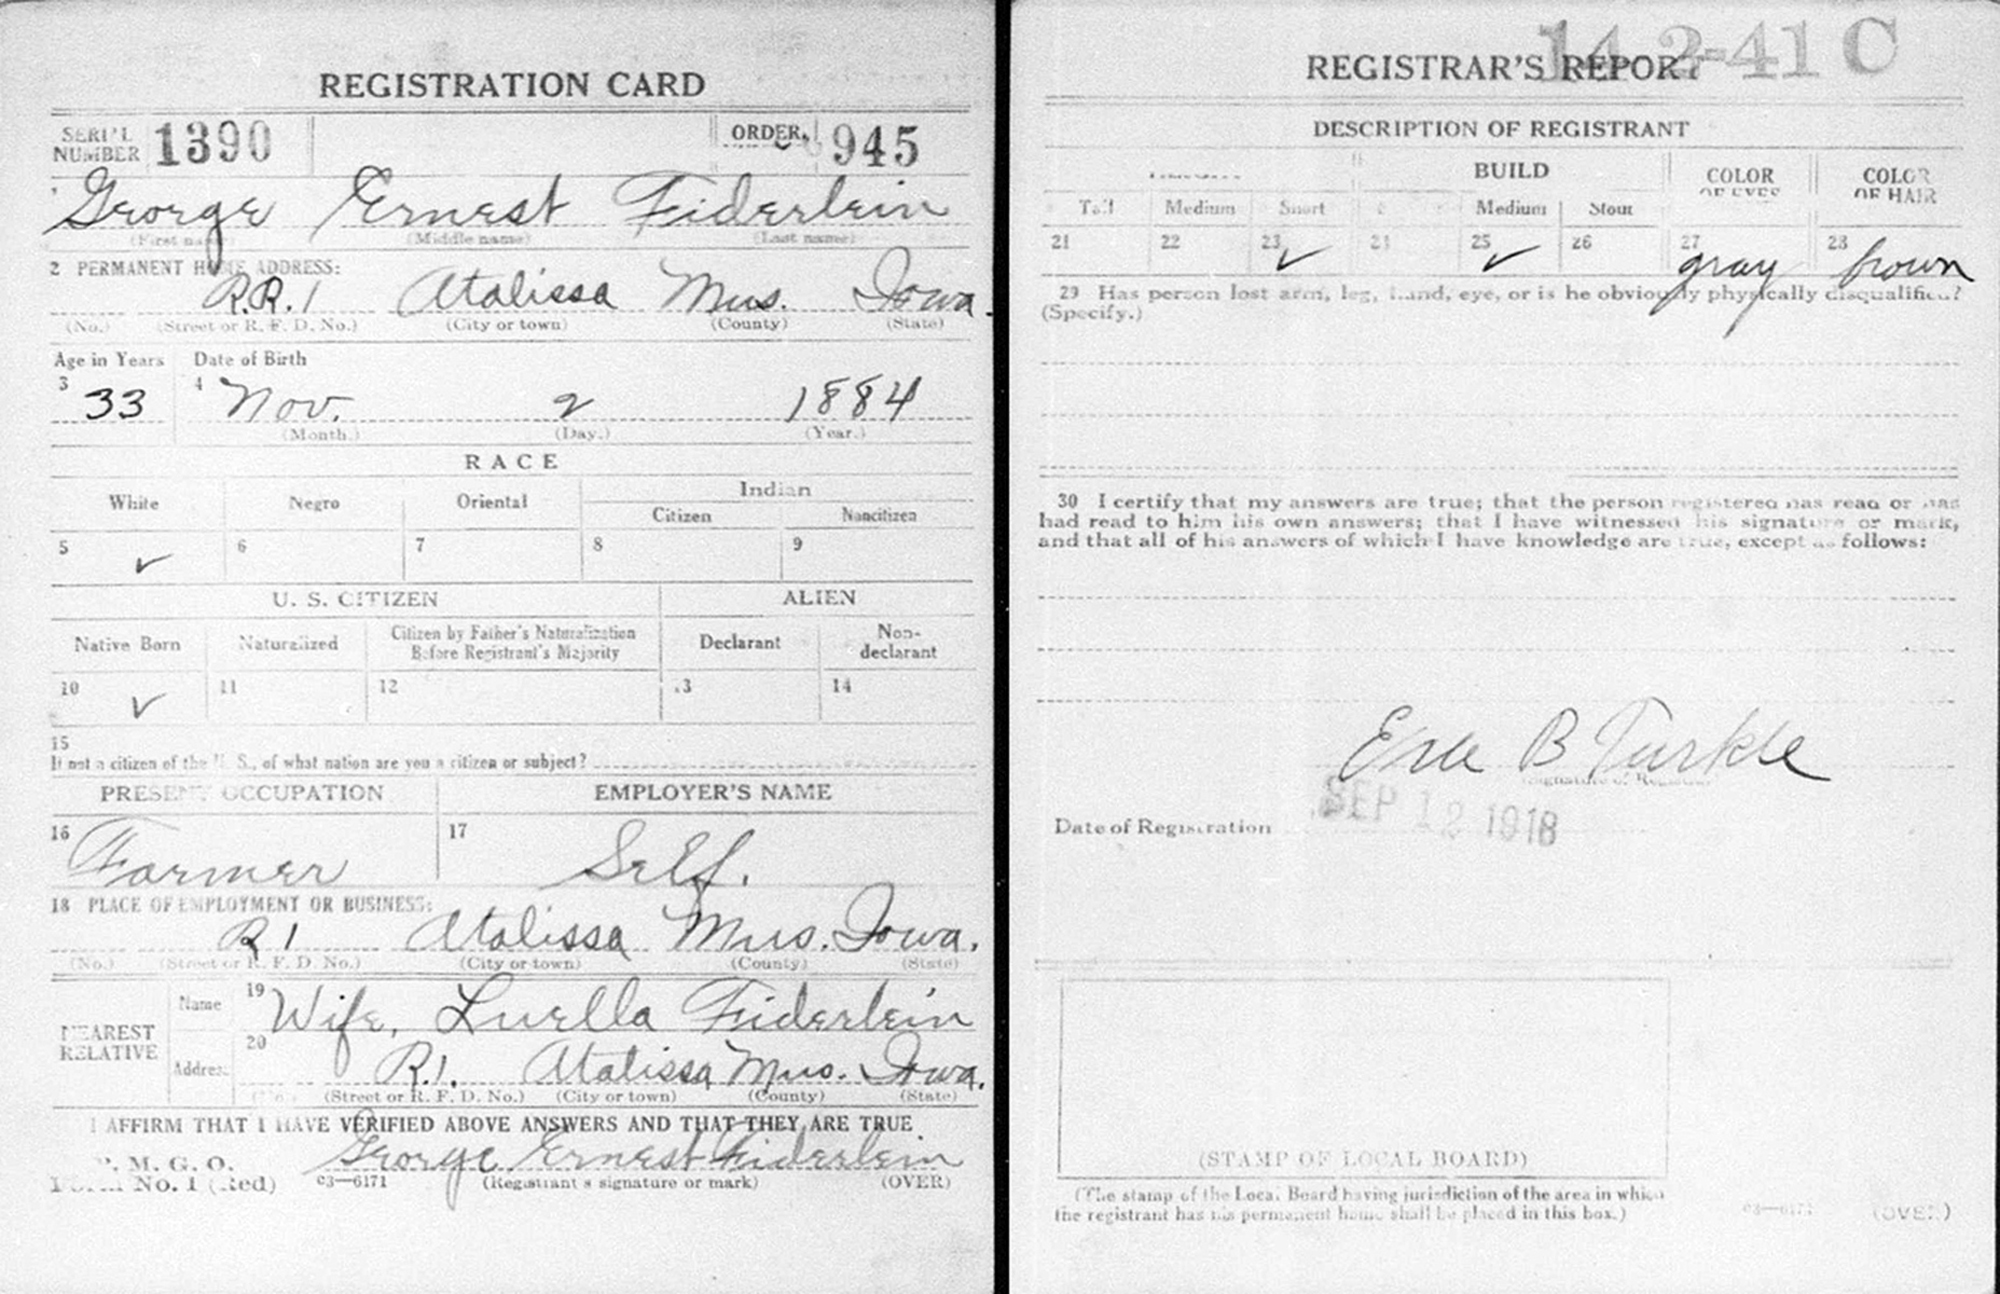 REGISTRATION CARD
SERIAL NUMBER 1390 ORDER 945
1 George Ernest Fiderlein
(First name) (Middle name) (Last name)
2 PERMANENT HOME ADDRESS:
R.R. 1 Atalissa Mus. Iowa.
(No.) (Street or R. F. D. No.) (City or town) (County) (State)
Age in Years Date of Birth
3 33 4 Nov. 2 1884
(Month.) (Day.) (Year.)
RACE
White Negro Oriental Indian
Citizen Noncitizen
5 ✓ 6 7 8 9
U. S. CITIZEN ALIEN
Native Born Naturalized Citizen by Father's Naturalization Before Registrant's Majority Declarant Non-declarant
10 ✓ 11 12 13 14
15
If not a citizen of the U. S., of what nation are you a citizen or subject?
PRESENT OCCUPATION EMPLOYER'S NAME
16 Farmer 17 Self.
18 PLACE OF EMPLOYMENT OR BUSINESS:
R 1 Atalissa Mus. Iowa.
(No.) (Street or R. F. D. No.) (City or town) (County) (State)
NEAREST RELATIVE
Name 19 Wife, Luella Fiderlein
Address 20 R.1. Atalissa Mus. Iowa.
(No.) (Street or R. F. D. No.) (City or town) (County) (State)
I AFFIRM THAT I HAVE VERIFIED ABOVE ANSWERS AND THAT THEY ARE TRUE
P. M. G. O.
Form No. 1 (Red) George Ernest Fiderlein
03—6171 (Registrant's signature or mark) (OVER)
14-2-41 C
REGISTRAR'S REPORT
DESCRIPTION OF REGISTRANT
BUILD COLOR OF EYES COLOR OF HAIR
Tall Medium Short Medium Stout
21 22 23 ✓ 24 25 ✓ 26 27 gray 28 brown
29 Has person lost arm, leg, hand, eye, or is he obviously physically disqualified?
(Specify.)
30 I certify that my answers are true; that the person registered has read or has
had read to him his own answers; that I have witnessed his signature or mark,
and that all of his answers of which I have knowledge are true, except as follows:
B Turkle
(Signature of Registrar)
Date of Registration SEP 12 1918
(STAMP OF LOCAL BOARD)
(The stamp of the Local Board having jurisdiction of the area in which
the registrant has his permanent home shall be placed in this box.)
03—6171 (OVER)